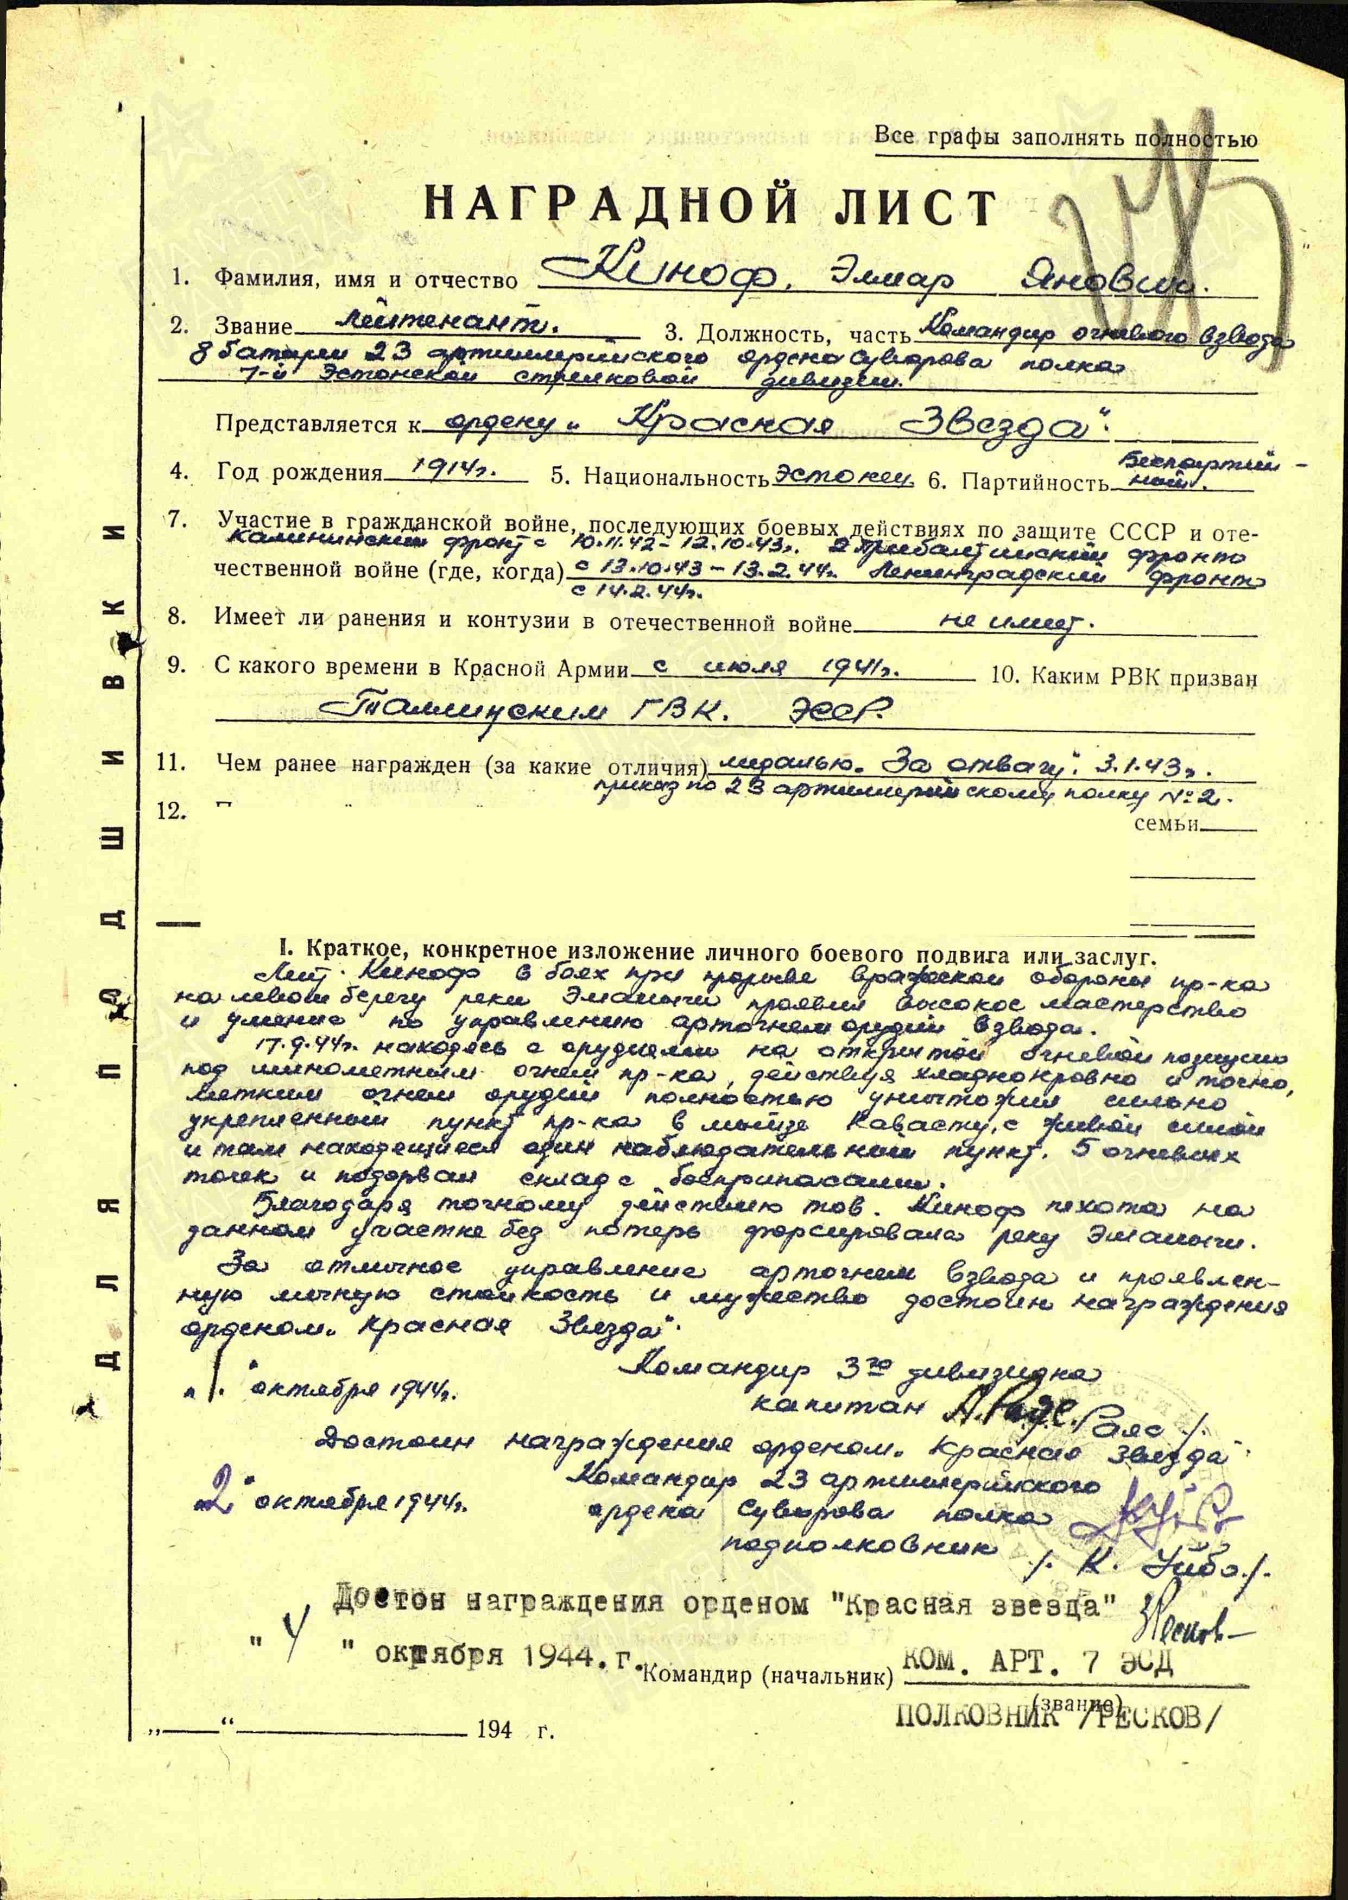 Все графы заполнять полностью
НАГРАДНОЙ ЛИСТ
1. Фамилия, имя и отчество Киноф, Элмар Янович.
2. Звание Лейтенант. 3. Должность, часть Командир огневого взвода
8 батареи 23 артиллерийского ордена Суворова полка
7-й Эстонской стрелковой дивизии.
Представляется к ордену „Красная Звезда“.
4. Год рождения 1914г. 5. Национальность Эстонец 6. Партийность Беспартий-
ный.
7. Участие в гражданской войне, последующих боевых действиях по защите СССР и оте-
Калининский фронт с 10.11.42 - 12.10.43г. 2 Прибалтийский фронт
чественной войне (где, когда) с 13.10.43 - 13.2.44г. Ленинградский фронт
с 14.2.44г.
8. Имеет ли ранения и контузии в отечественной войне не имеет.
9. С какого времени в Красной Армии с июля 1941г. 10. Каким РВК призван
Таллинским ГВК. ЭССР.
11. Чем ранее награжден (за какие отличия) медалью „За отвагу“. 3.1.43г.
приказ по 23 артиллерийскому полку № 2.
12.
семьи
I. Краткое, конкретное изложение личного боевого подвига или заслуг.
Лейт. Киноф в боях при прорыве вражеской обороны пр-ка
на левом берегу реки Эмайыги проявил высокое мастерство
и умение по управлению артогнем орудий взвода.
17.9.44г. находясь с орудиями на открытой огневой позиции
под минометным огнем пр-ка, действуя хладнокровно и точно,
метким огнем орудий полностью уничтожил сильно
укрепленный пункт пр-ка в мызе Кавасту, с живой силой
и там находящиеся один наблюдательный пункт, 5 огневых
точек и подорвал склад с боеприпасами.
Благодаря точному действию тов. Киноф пехота на
данном участке без потерь форсировала реку Эмайыги.
За отличное управление артогнем взвода и проявлен-
ную личную стойкость и мужество достоин награждения
орденом „Красная Звезда“.
„1“ октября 1944г. Командир 3го дивизиона
капитан Раяс /.
Достоин награждения орденом „Красная Звезда“
„2“ октября 1944г. Командир 23 артиллерийского
ордена Суворова полка
подполковник /К. Уйбо/.
Достон награждения орденом "Красная звезда"
" 4 " октября 1944. г. Командир (начальник) КОМ. АРТ. 7 ЭСД
(звание)
ПОЛКОВНИК /РЕСКОВ/
„ “ 194 г.
ДЛЯ ПОДШИВКИ